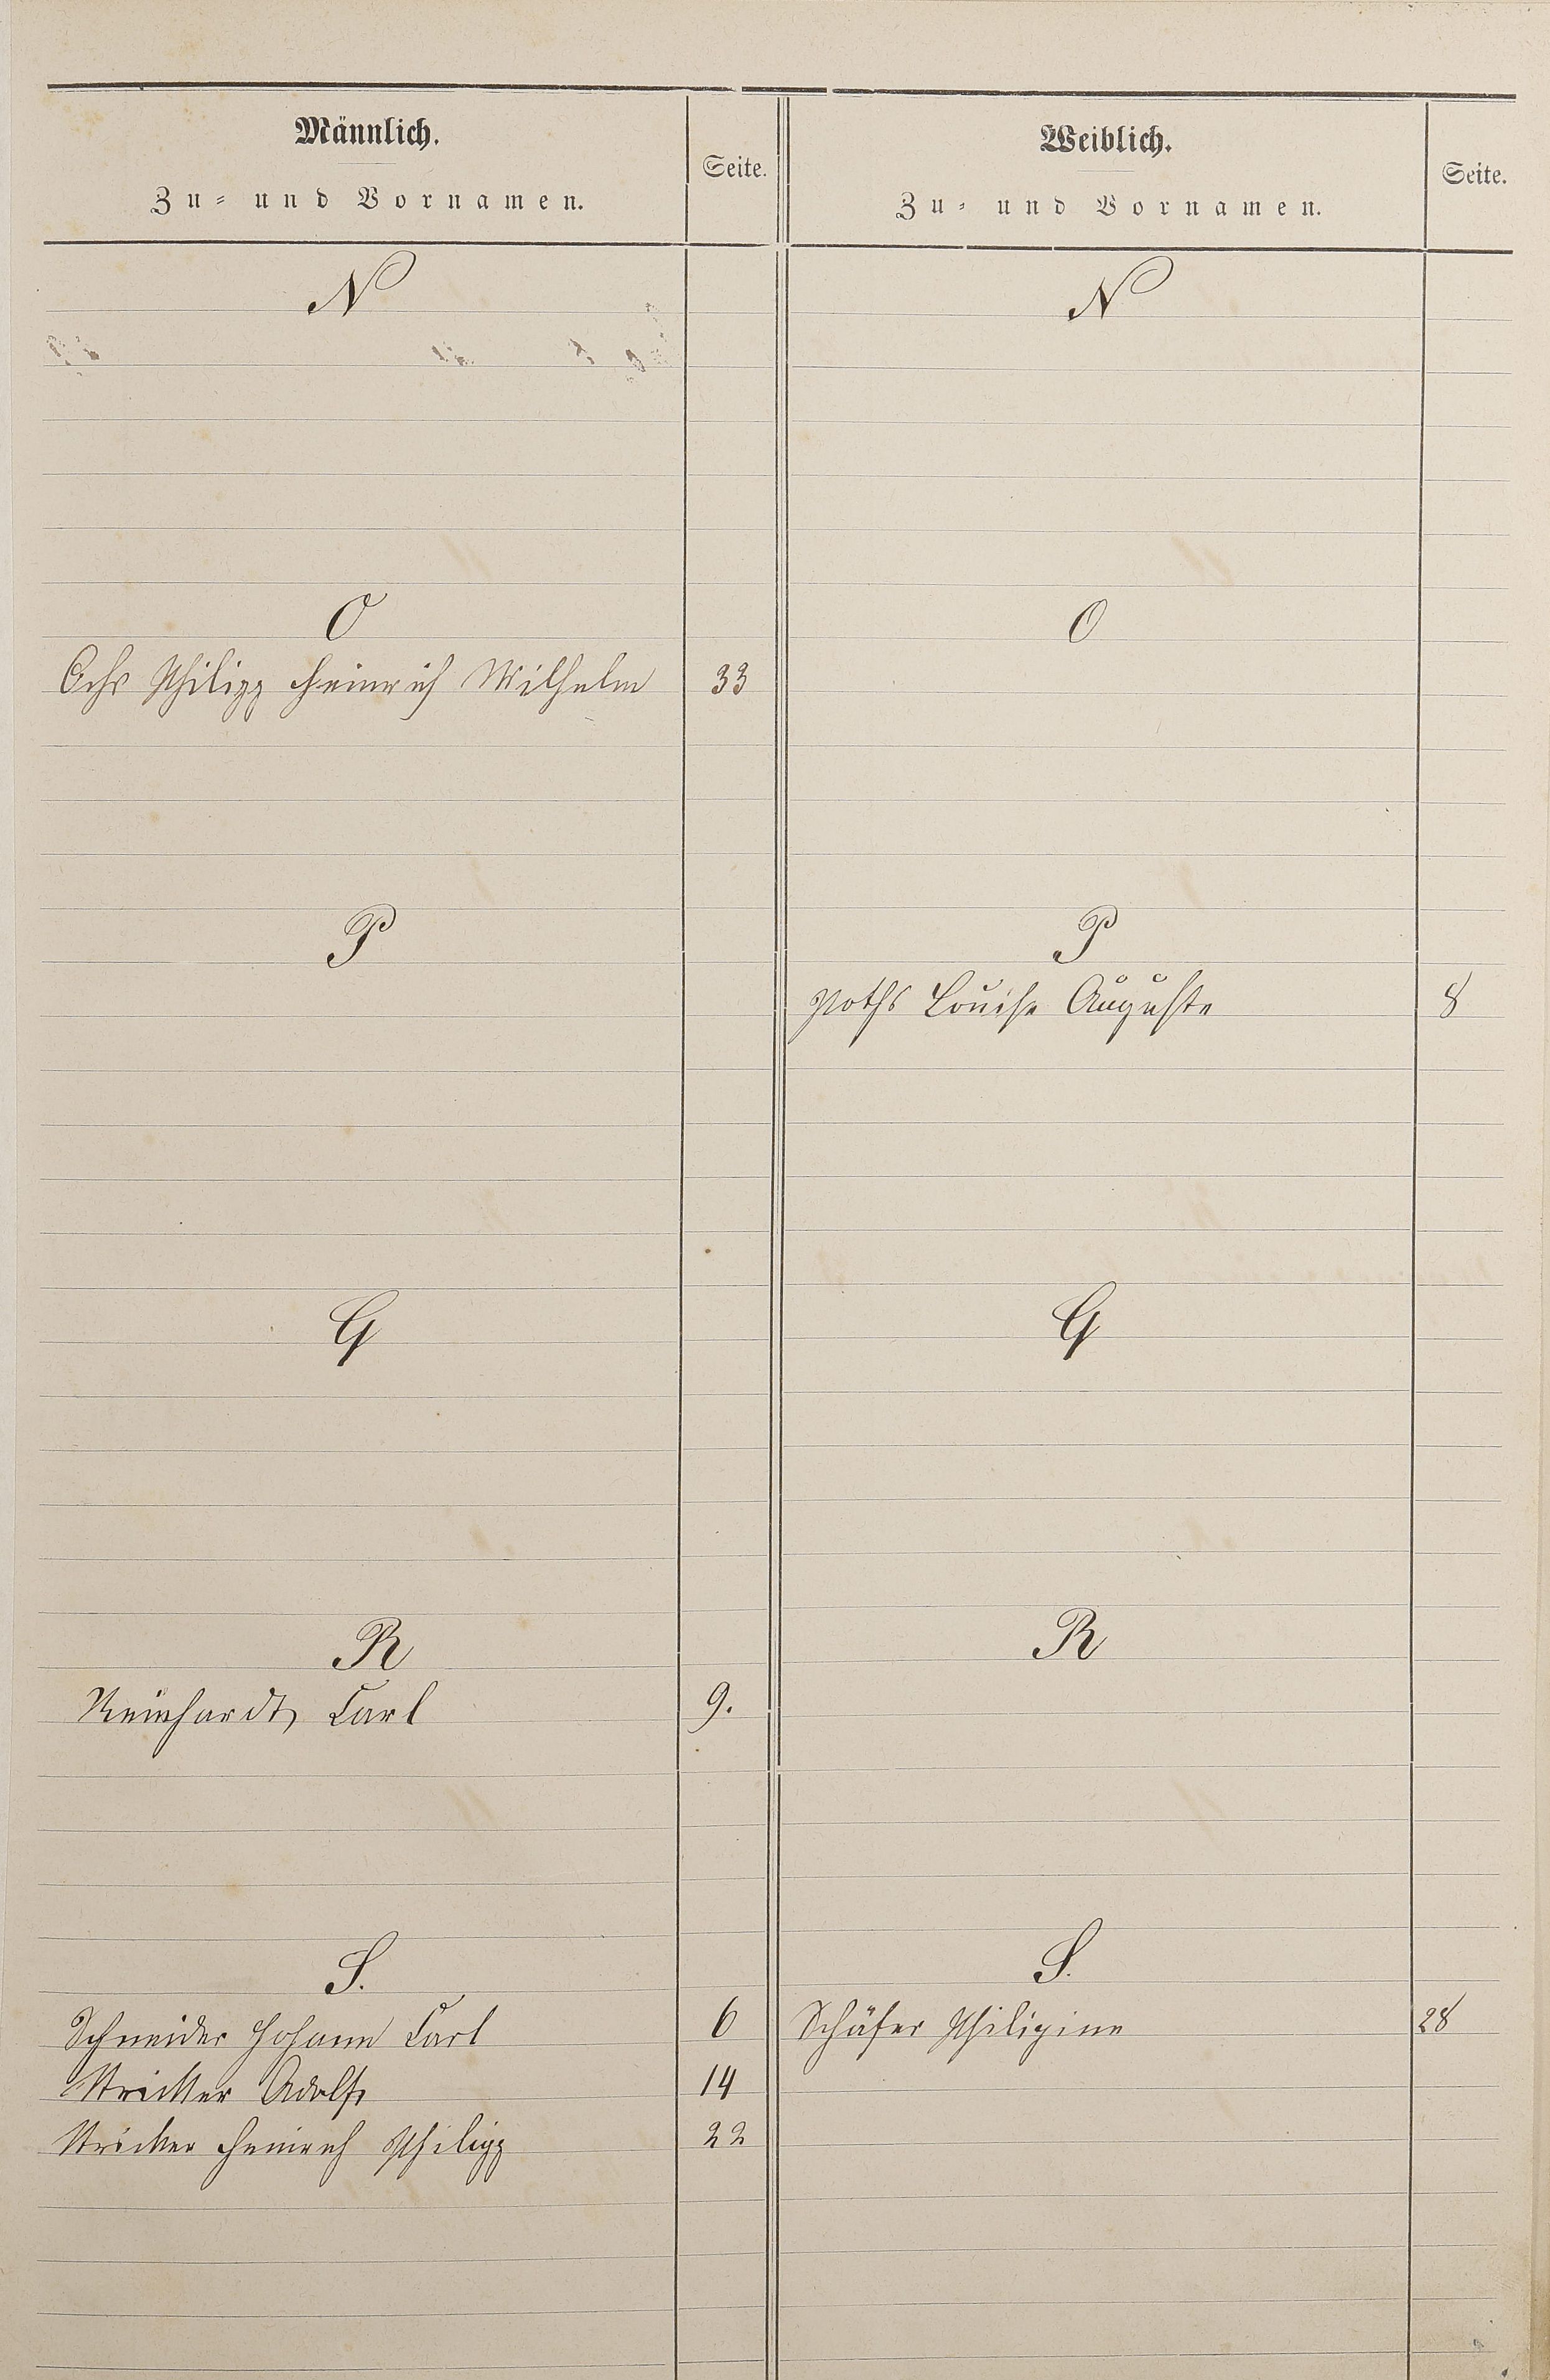 Männlich.
Zu- und Vornamen.
Seite.
Weiblich.
Zu- und Vornamen.
Seite.
N
N
O
O
Ochs Philipp Heinrich Wilhelm 33
P
P
Poths Louise Auguste 8
Q
Q
R
R
Reinhardt, Carl 9.
S.
S.
Schneider Johann Carl 6
Schäfer Philipine 28
Stricker Adolf 14
Stricker Heinrich Philipp 22